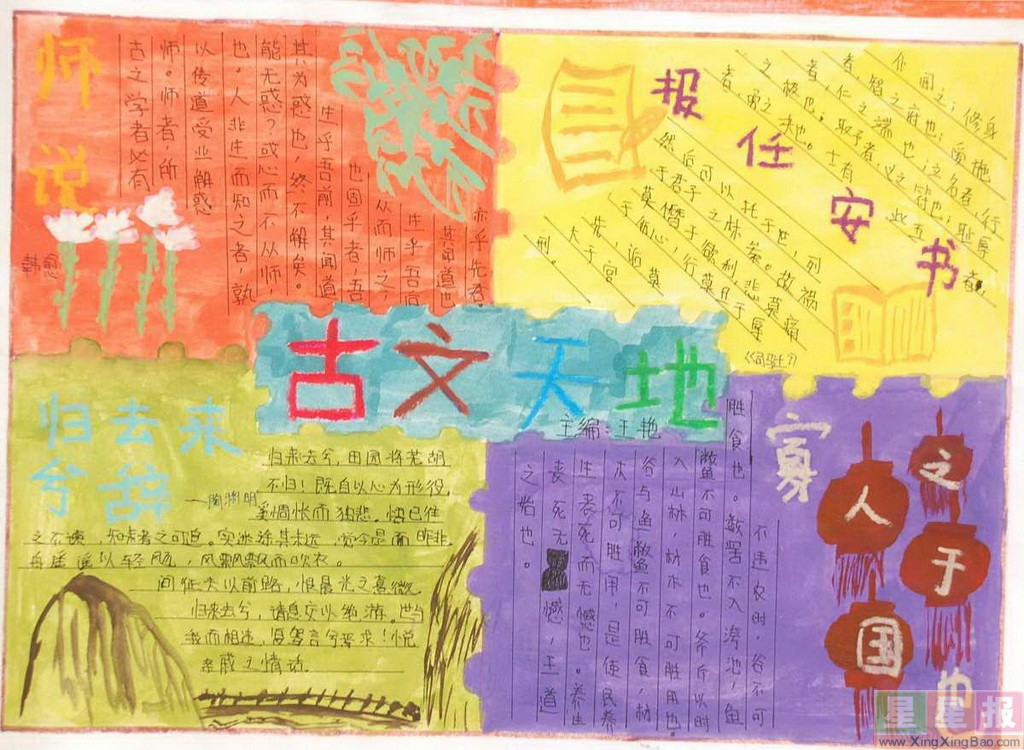 师说
韩愈
古之学者必有
师。师者，所
以传道受业解惑
也，人非生而知之者，孰
能无惑？或惑而不从师，
其为惑也，终不解矣。
生乎吾前，其闻道
也固乎者，吾
从而师之，
生乎吾后
其闻道也
亦乎先吾
报任安书
介闻之；修身
者，智之府也；爱施
者，仁之端也；立名者，行
之极也；取予者，义之符也；耻辱
者，勇之决也。士有此五者，
然后可以托于世，列
于君子之林矣。故祸
莫憯于欲利，悲莫痛
于伤心，行莫丑于辱
先，诟莫
大于宫
刑。
古文天地
主编：王艳
归去来
兮辞
——陶渊明
归来去兮，田园将芜胡
不归！既自以心为形役，
奚惆怅而独悲。悟已往
之不谏，知来者之可追。实迷途其未远，觉今是而昨非。
舟遥遥以轻飏，风飘飘而吹衣。
问征夫以前路，恨晨光之熹微。
归来去兮，请息交以绝游。世与
我而相违，复驾言兮焉求！悦
亲戚之情话。
寡人之于国也
不违农时，谷不可
胜食也。数罟不入洿池，鱼
鳖不可胜食也。斧斤以时
入山林，材木不可胜用也。
谷与鱼鳖不可胜食，材
木不可胜用，是使民养
生丧死而无憾也。养生
丧死无憾，王道
之始也。
星星报
www.XingXingBao.com